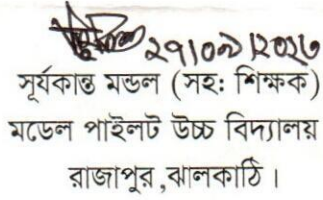 ২৭।০৯।২০২৩
সূর্যকান্ত মন্ডল (সহ: শিক্ষক)
মডেল পাইলট উচ্চ বিদ্যালয়
রাজাপুর,ঝালকাঠি।